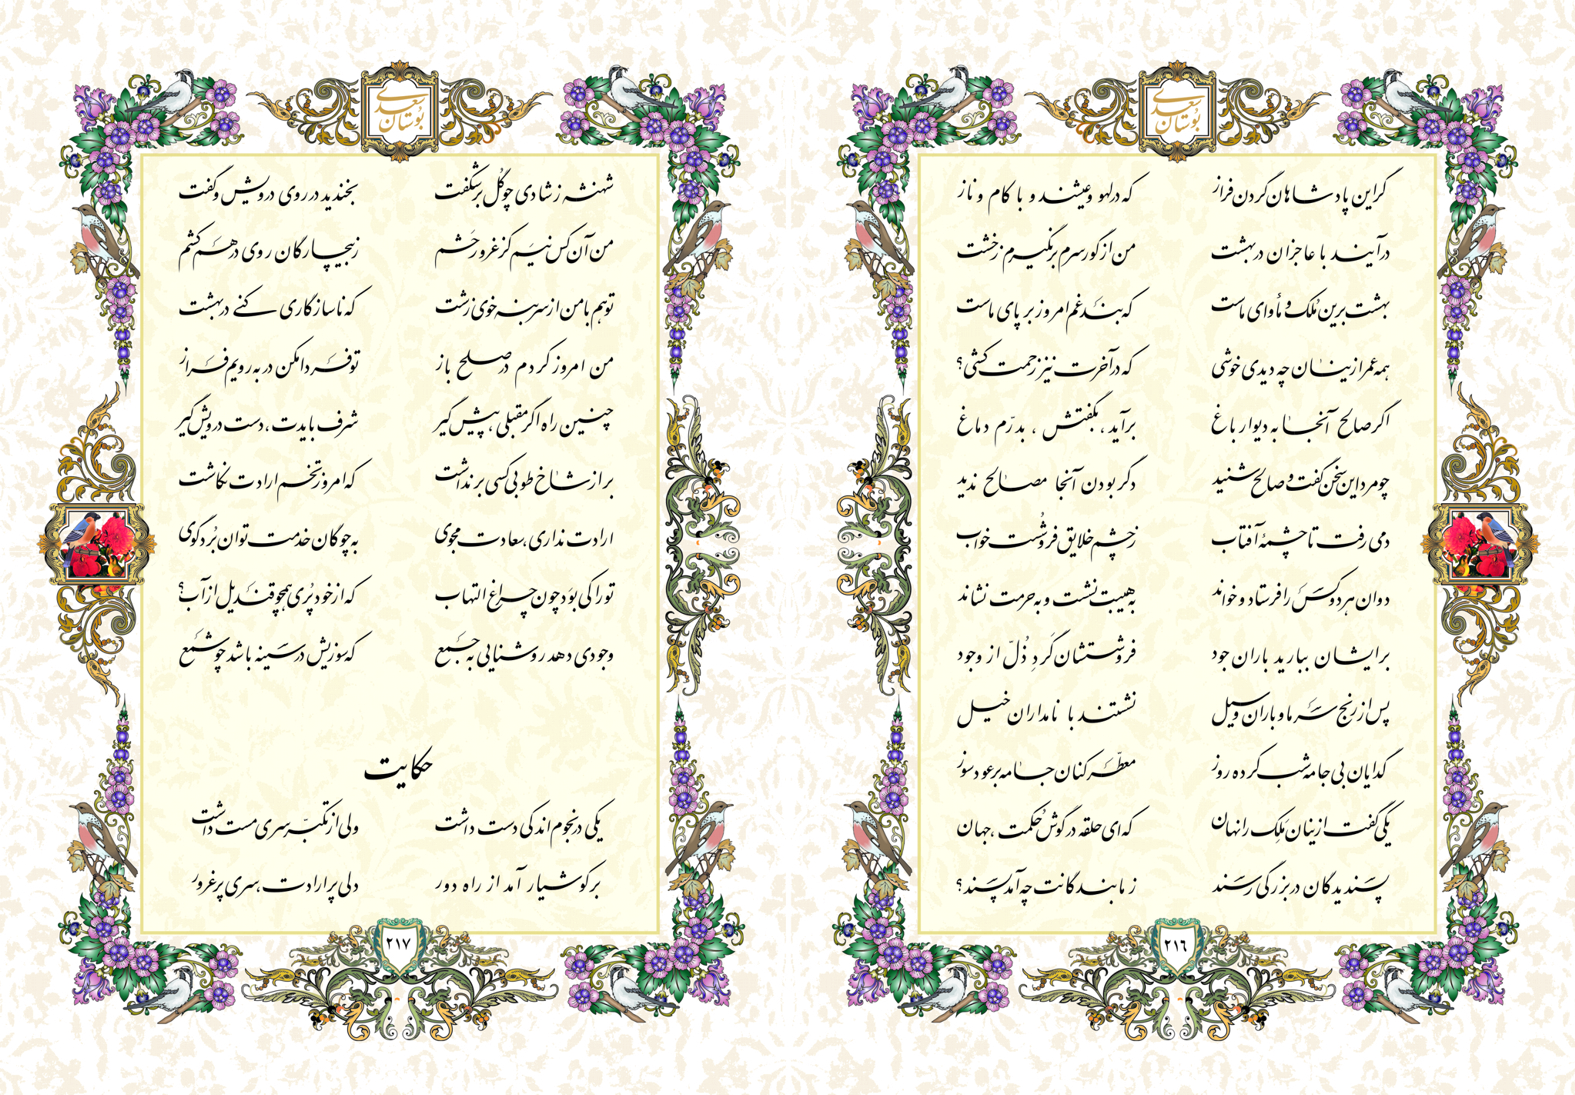 بوستان سعدی
گر این پادشاهان گردن فراز که در لهو و عیشند و با کام و ناز
درآیند با عاجزان در بهشت من از گور سر برنگیرم ز خشت
بهشت برین مُلک و مأوای ماست که بند غم امروز بر پای ماست
همه عمر از اینان چه دیدی خوشی که در آخرت نیز زحمت کشی؟
اگر صالح آنجا به دیوار باغ برآید، بکفشش، بدرّم دماغ
چو مرد این سخن گفت و صالح شنید دگر بودن آنجا مصالح ندید
دمی رفت تا چشمهٔ آفتاب ز چشم خلایق فروشُست خواب
دوان هر دو کَس را فرستاد و خواند به هیبت نشست و به حرمت نشاند
برایشان ببارید باران جود فروشستشان گَردِ ذُلّ از وجود
پس از رنج سرما و باران و سیل نشستند با نامداران خیل
گدایان بی جامه شب کرده روز معطّر کنان جامه بر عود سوز
یکی گفت از اینان مَلِک را نهان که ای حلقه در گوش حُکمت، جهان
پسندیدگان در بزرگی رسند ز ما بندگانت چه آمد پسند؟
۲۱۶
بوستان سعدی
شهنشه ز شادی چو گُل بر شکفت بخندید در روی درویش و گفت
من آن کس نیم کز غرور حَشم ز بیچارگان روی درهم کشم
تو هم با من از سر بنه خوی زشت که ناسازگاری کنی در بهشت
من امروز کردم در صلح باز تو فردا مکن در به رویم فراز
چنین راه اگر مقبلی، پیش گیر شرف بایدت، دست درویش گیر
بر از شاخ طوبی کسی برنداشت که امروز تخم ارادت نکاشت
ارادت نداری، سعادت مجوی به چوگان خدمت توان بُرد گوی
تو را کی بوَد چون چراغ التهاب که از خود پُری همچو قندیل از آب؟
وجودی دهد روشنایی به جمع که سوزیش در سینه باشد چو شمع
حکایت
یکی در نجوم اندکی دست داشت ولی از تکبّر سری مست داشت
بر گوشیار آمد از راه دور دلی پر ارادت، سری پر غرور
۲۱۷